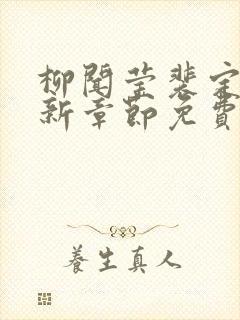 柳闻莹裴定
新章節免費
養生真人